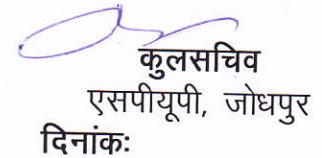 कुलसचिव
एसपीयूपी, जोधपुर
दिनांकः